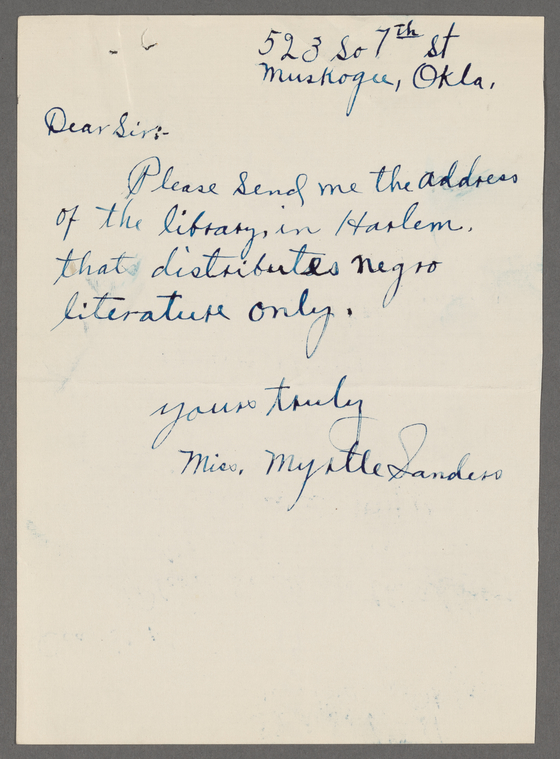 523 So 7th St
Muskogee, Okla.
Dear Sir:-
Please send me the address
of the library, in Harlem.
that distributes negro
literature only.
yours truly
Miss. Myrtle Sanders